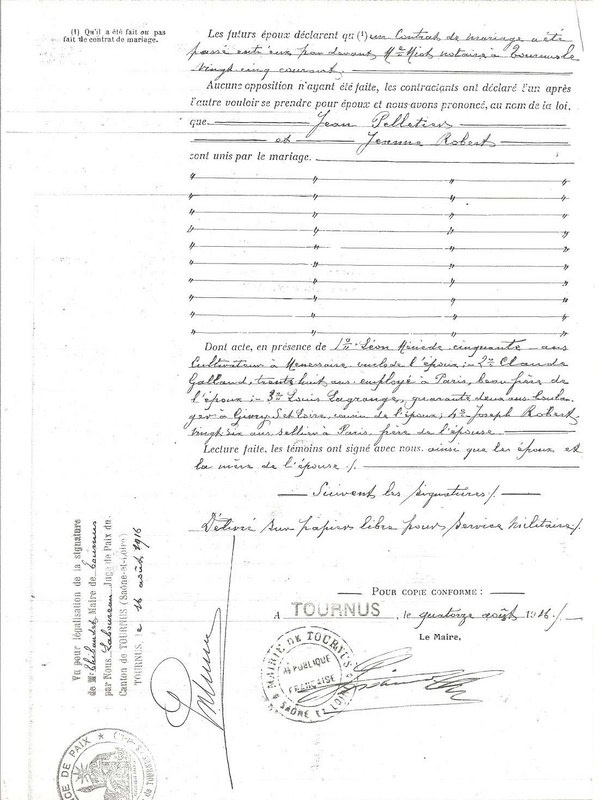 (1) Qu'il a été fait ou pas
fait de contrat de mariage.
Les futurs époux déclarent qu (1) un Contrat de mariage a été
passé entr'eux par devant Me Miot notaire à Tournus le
vingt cinq courant.
Aucune opposition n'ayant été faite, les contractants ont déclaré l'un après
l'autre vouloir se prendre pour époux et nous avons prononcé, au nom de la loi,
que Jean Pelletier
et Jeanne Robert
sont unis par le mariage.
Dont acte, en présence de 1o Léon cinquante ans
Cultivateur à oncle de l'époux ; 2o Claude
Galland, trente huit ans employé à Paris, beau frère de
l'époux ; 3o Louis Lagrange, quarante deux ans boulan-
ger à Givry S. et Loire, cousin de l'époux ; 4o Joseph Robert
vingt six ans sellier à Paris, frère de l'épouse
Lecture faite, les témoins ont signé avec nous, ainsi que les époux et
la mère de l'épouse /.
Suivent les signatures /.
Délivré sur papier libre pour service militaire /.
POUR COPIE CONFORME :
A TOURNUS, le quatorze août 1916 /.
Le Maire,
MAIRIE DE TOURNUS
RÉPUBLIQUE
FRANÇAISE
SAÔNE ET LOIRE
Vu pour légalisation de la signature
de M. Maire de Tournus
par Nous Juge de Paix du
Canton de TOURNUS (Saône-et-Loire)
TOURNUS, le 16 août 1916
DE PAIX